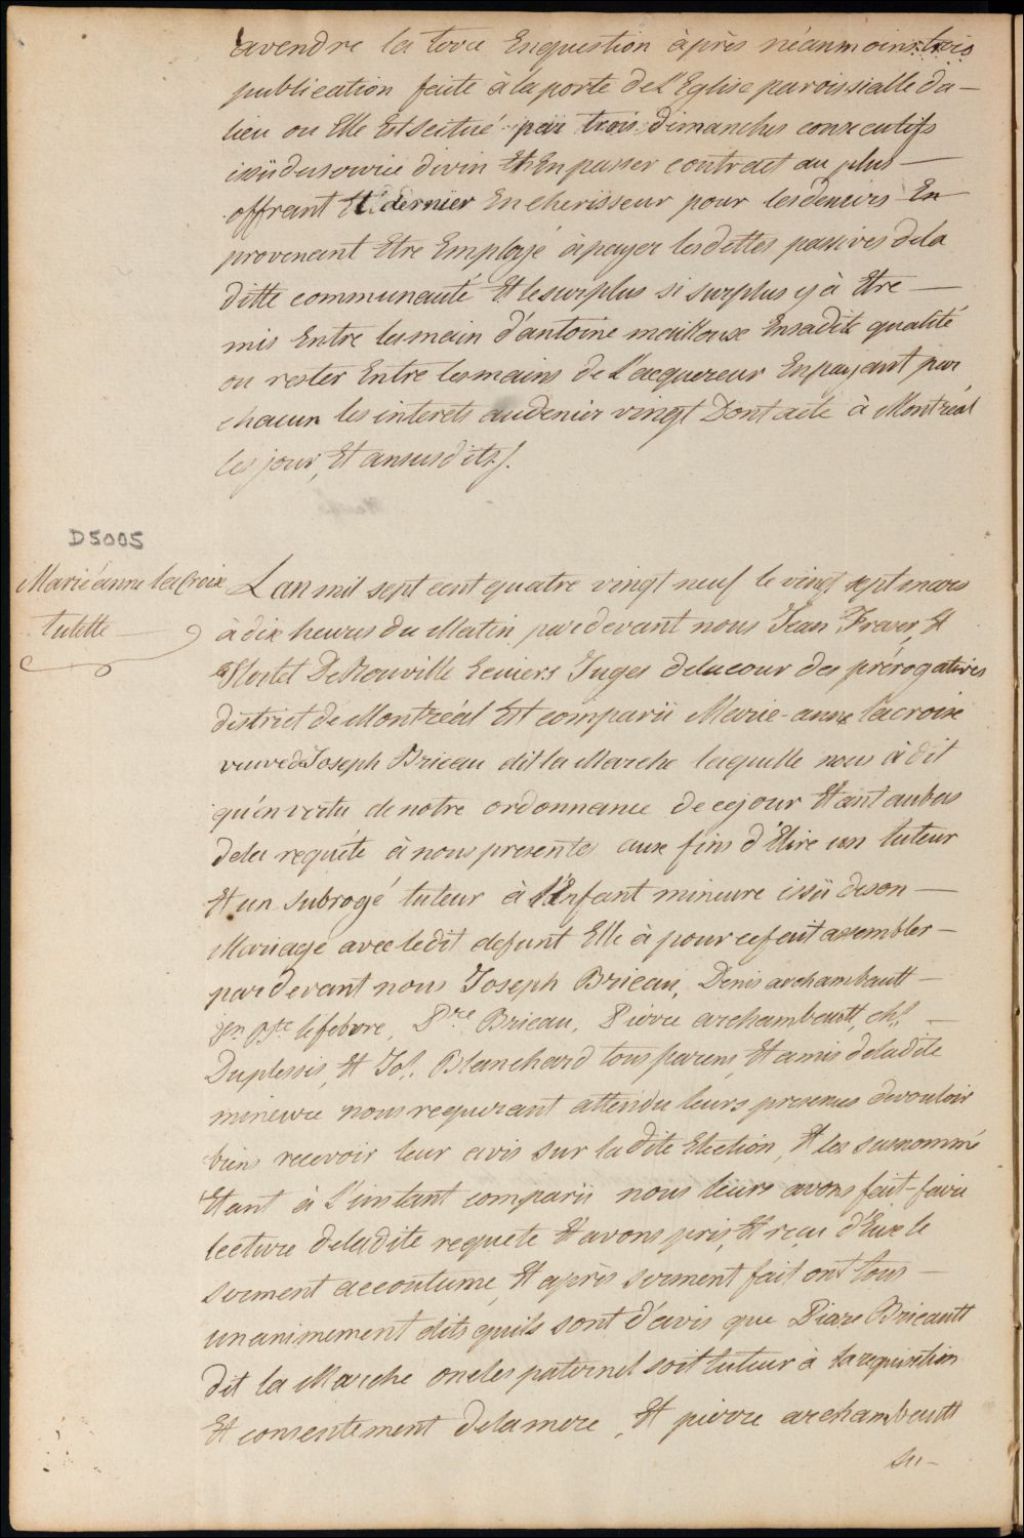 avendre la terre Enquestion àprès néanmoins trois
publication faite à la porte de l'Eglise paroissialle du –
lieu ou Elle Est scitué par trois dimanches consecutifs
issüe du service divin Et En passer contract au plus –
offrant Et dernier Encherisseur pour les deniers En
provenant Etre Employé àpayer les dettes passives dela
ditte communauté Et le surplus si surplus y à Etre –
mis Entre la main d'antoine mailloux Ensadite qualité
ou rester Entre les mains de L'acquereur En payant par
chacun les interets au denier vingt Dont acte à Montréal
les jour, Et an susdits /.
D5005
Marie anne la Croix
Tutelle
Lan mil sept cent quatre vingt neuf le vingt sept mars
à dix heures du Matin par devant nous Jean Fraser, Et
Hertel De Rouville Ecuiers Juges delacour des prérogatives
district de Montréal Est comparü Marie-anne lacroix
veuve de Joseph Bricau dit la Marche laquelle nous à dit
qu'en vertu de notre ordonnance de cejour Etant aubas
dela requéte à nous presentes aux fins d'Elire un tuteur
Et un Subrogé tuteur à l'Enfant mineure issü deson –
Mariage avec ledit defunt Elle à pour ce fait assembler –
par devant nous Joseph Bricau, Denis archambault –
Jn Bte lefebvre, Pre Bricau, Pierre archambault, chs. –
Duplessis, Et Jos. Blanchard tous parens, Et amis deladite
mineure nous requerant attendu leurs presences devouloir
bien recevoir leur avis sur la dite Election, Et les susnommé
Etant à L'instant comparü nous leurs avons fait-faire
lecture deladite requete Et avons pris, Et reçu d'Eux le
serment accoutumé, Et après serment fait ont tous –
unanimement dits quils sont d'avis que Piere Bricault
dit la Marche oncles paternel soit tuteur à la requisition
Et consentement dela mere, Et pierre archambault